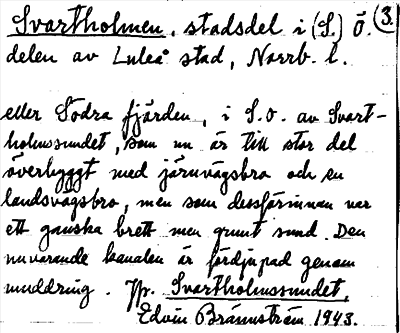 Svartholmen, stadsdel i (S.) Ö. (3.)
delen av Luleå stad, Norrb. l.
eller Södra fjärden, i S.O. av Svart-
holmssundet, som nu är till stor del
överbyggt med järnvägsbro och en
landsvägsbro, men som dessförinnan var
ett ganska brett men grunt sund. Den
nuvarande kanalen är fördjupad genom
muddring. Jfr. Svartholmssundet,
Edvin Brännström 1943.